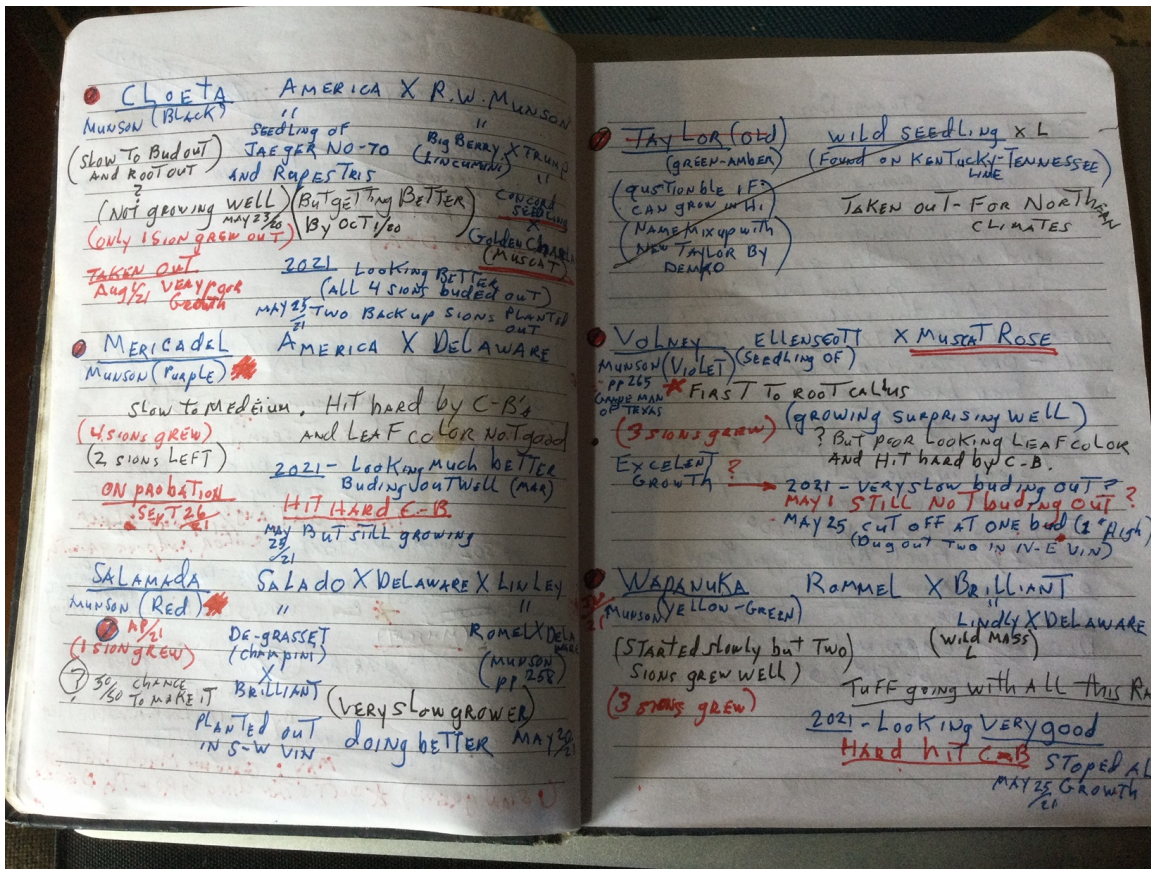 CLOETA AMERICA X R.W. MUNSON
MUNSON (BLACK) " "
SEEDLING OF
JAEGER NO-70
AND RUPESTRIS
BIG BERRY X TRUMP
(LINCUMINI) "
CONCORD
SEEDLING
X
GOLDEN
(MUSCAT)
(SLOW TO BUD OUT
AND ROOT OUT)
?
(NOT GROWING WELL)
MAY 23/20
(BUT GETTING BETTER
BY OCT 1/20
(ONLY 1 SION GREW OUT)
TAKEN OUT
AUG 1/21 VERY POOR
GROWTH
2021 LOOKING BETTER
(ALL 4 SIONS BUDED OUT)
MAY 25/21 - TWO BACKUP SIONS PLANTED
OUT
MERICADEL AMERICA X DELAWARE
MUNSON (PURPLE)
SLOW TO MEDEIUM. HIT HARD BY C-B's
AND LEAF COLOR NOT good
(4 SIONS GREW)
(2 SIONS LEFT)
ON PROBATION
SEPT 26/21
2021 - LOOKING MUCH BETTER
BUDING OUT WELL (MAR)
HIT HARD C-B
MAY 25/21 BUT STILL GROWING
SALAMADA SALADO X DELAWARE X LINLEY
MUNSON (RED) " "
AP/21
(1 SION GREW)
? 30/50 CHANCE
TO MAKE IT
DE-GRASSET
(CHAMPINI)
X
BRILLIANT
ROMEL X DELAWARE
(MUNSON
pp 258)
(VERY SLOW GROWER)
PLANTED OUT
IN S-W VIN
doing bETTER MAY 20/21
TAYLOR (OLD) WILD SEEDLING X L
(GREEN-AMBER) (FOUND ON KENTUCKY-TENNESSEE
LINE
(QUSTIONBLE IF
CAN GROW IN HI
TAKEN OUT - FOR NORTHERN
CLIMATES
(NAME MIXUP WITH
NEW TAYLOR BY
DEMKO
VOLNEY ELLENSCOTT X MUSCAT ROSE
MUNSON (VIOLET) (SEEDLING OF)
pp 265
GRAPE MAN
OF TEXAS
* FIRST TO ROOT CALLUS
(GROWING SURPRISING WELL)
(3 SIONS GREW)
? BUT POOR LOOKING LEAF COLOR
AND HIT HARD BY C-B.
EXCELENT
GROWTH ?
2021 - VERY SLOW buding OUT?
MAY 1 STILL NOT buding OUT ?
MAY 25 CUT OFF AT ONE bud (1" High)
(DUG OUT TWO IN IV-E VIN)
WAPANUKA ROMMEL X BRILLIANT
MUNSON (YELLOW-GREEN) "
LINDLY X DELAWARE
(WILD MASS)
L
(STARTED SLOWLY BUT TWO
SIONS GREW WELL)
TUFF GOING WITH ALL THIS RA
(3 SIONS GREW)
2021 - LOOKING VERY good
HARD HIT C-B STOPED AL
MAY 25/21 GROWTH